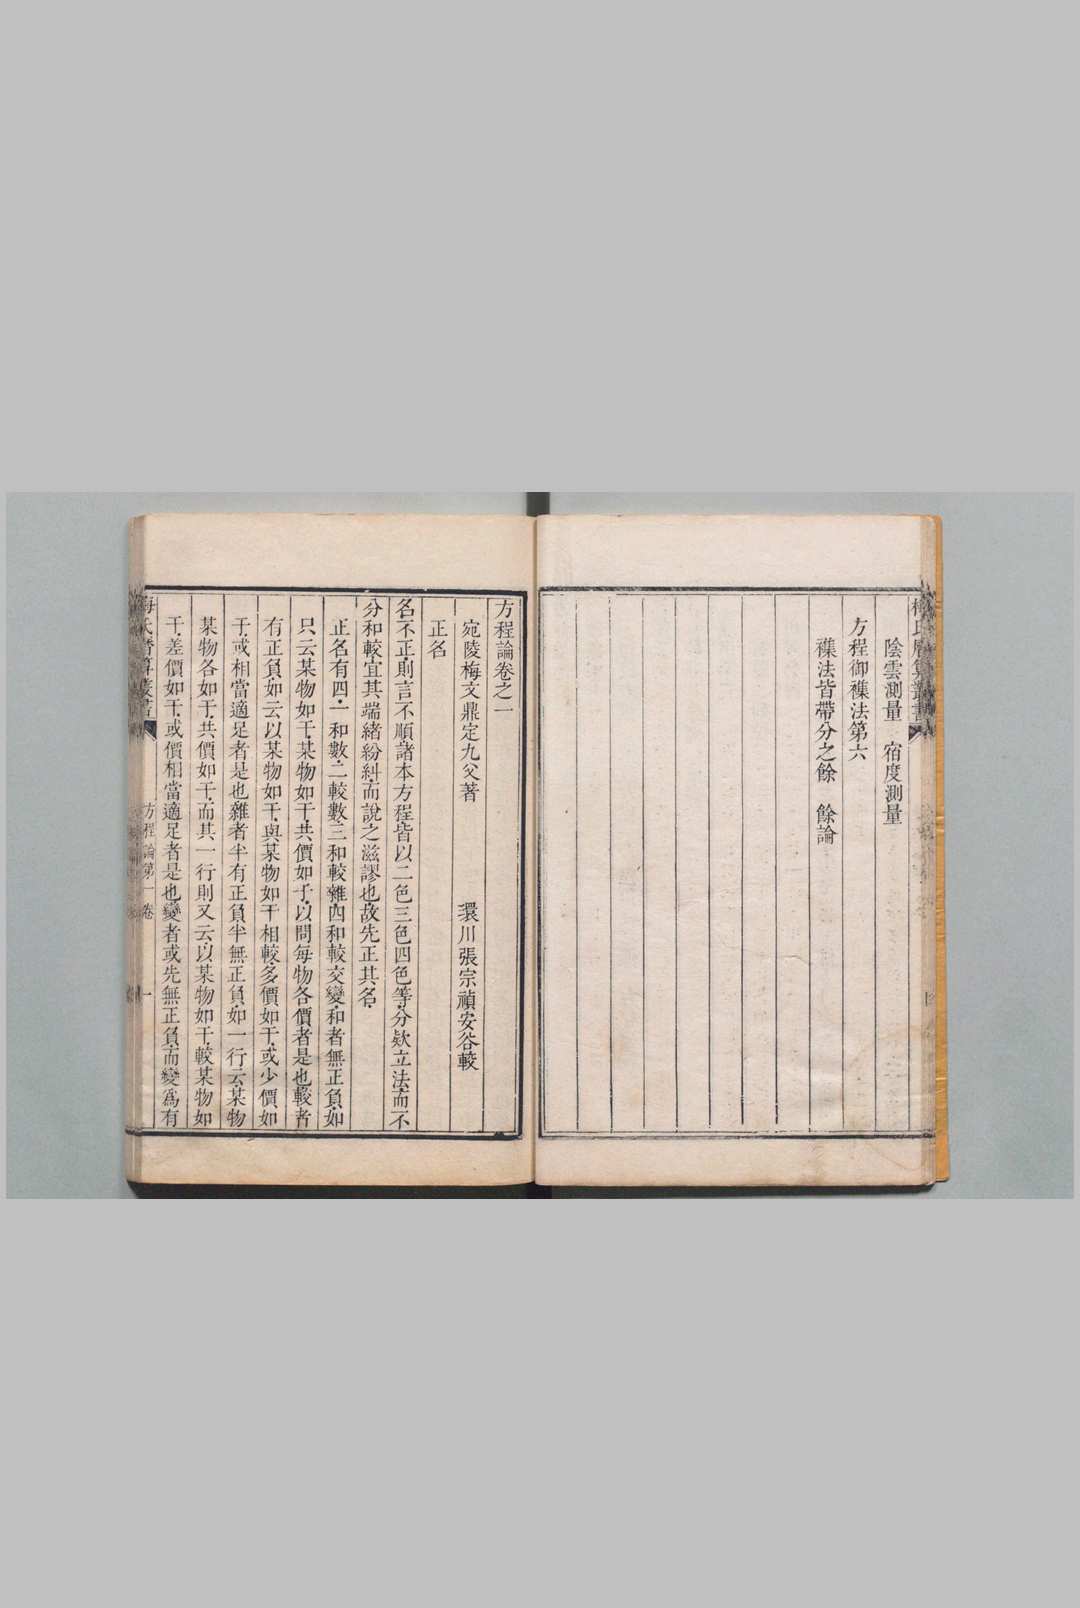 陰雲測量　宿度測量
方程御襍法第六
襍法皆帶分之餘　餘論
方程論卷之一
宛陵梅文鼎定九父著　環川張宗禎安谷較
正名
名不正則言不順諸本方程皆以二色三色四色等分欵立法而不
分和較宜其端緒紛糾而說之滋謬也故先正其名
正名有四一和數二較數三和較雜四和較交變和者無正負如
只云某物如干某物如干共價如干以問每物各價者是也較者
有正負如云以某物如干與某物如干相較多價如干或少價如
干或相當適足者是也雜者半有正負半無正負如一行云某物
某物各如干共價如干而其一行則又云以某物如干較某物如
干差價如干或價相當適足者是也變者或先無正負而變爲有
方程論第一卷
一